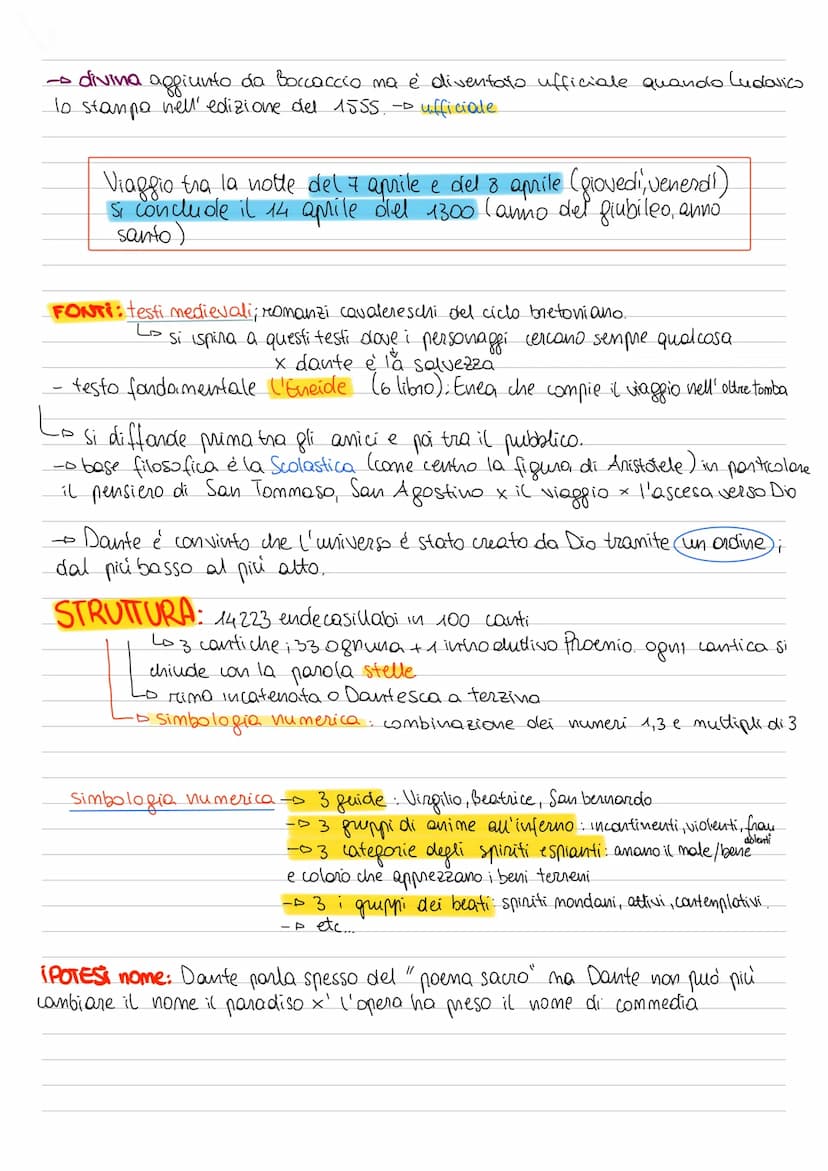 → divina aggiunto da Boccaccio ma è diventato ufficiale quando Ludovico
lo stampa nell'edizione del 1555. → ufficiale
Viaggio tra la notte del 7 aprile e del 8 aprile (giovedì, venerdì)
si conclude il 14 aprile del 1300 (anno del giubileo, anno
santo)
FONTI: testi medievali; romanzi cavalereschi del ciclo bretoviano.
↳ si ispira a questi testi dove i personaggi cercano sempre qualcosa
x dante è la salvezza
- testo fondamentale l'Eneide (6 libro): Enea che compie il viaggio nell'oltre tomba
↳ Si diffonde prima tra gli amici e poi tra il pubblico.
→ base filosofica è la Scolastica (come centro la figura di Aristotele) in particolare
il pensiero di San Tommaso, San Agostino x il viaggio x l'ascesa verso Dio
→ Dante é convinto che l'universo é stato creato da Dio tramite un ordine;
dal più basso al più alto.
STRUTTURA: 14223 endecasillabi in 100 canti
↳ 3 cantiche; 33 ognuna + 1 introdutivo Phoemio. ogni cantica si
chiude con la parola stelle
→ rima incatenata o Dantesca a terzina
→ simbologia numerica: combinazione dei numeri 1,3 e multipli di 3
simbologia numerica → 3 guide: Virgilio, Beatrice, San bernardo
→ 3 gruppi di anime all'inferno: incontinenti, violenti, frau
dolenti
→ 3 categorie degli spiriti espianti: amano il male/bene
e coloro che apprezzano i beni terreni
→ 3 i gruppi dei beati: spiriti mondani, attivi, contemplativi.
→ etc...
iPOTESi nome: Dante parla spesso del "poema sacro" ma Dante non può più
cambiare il nome il paradiso x' l'opera ha preso il nome di commedia